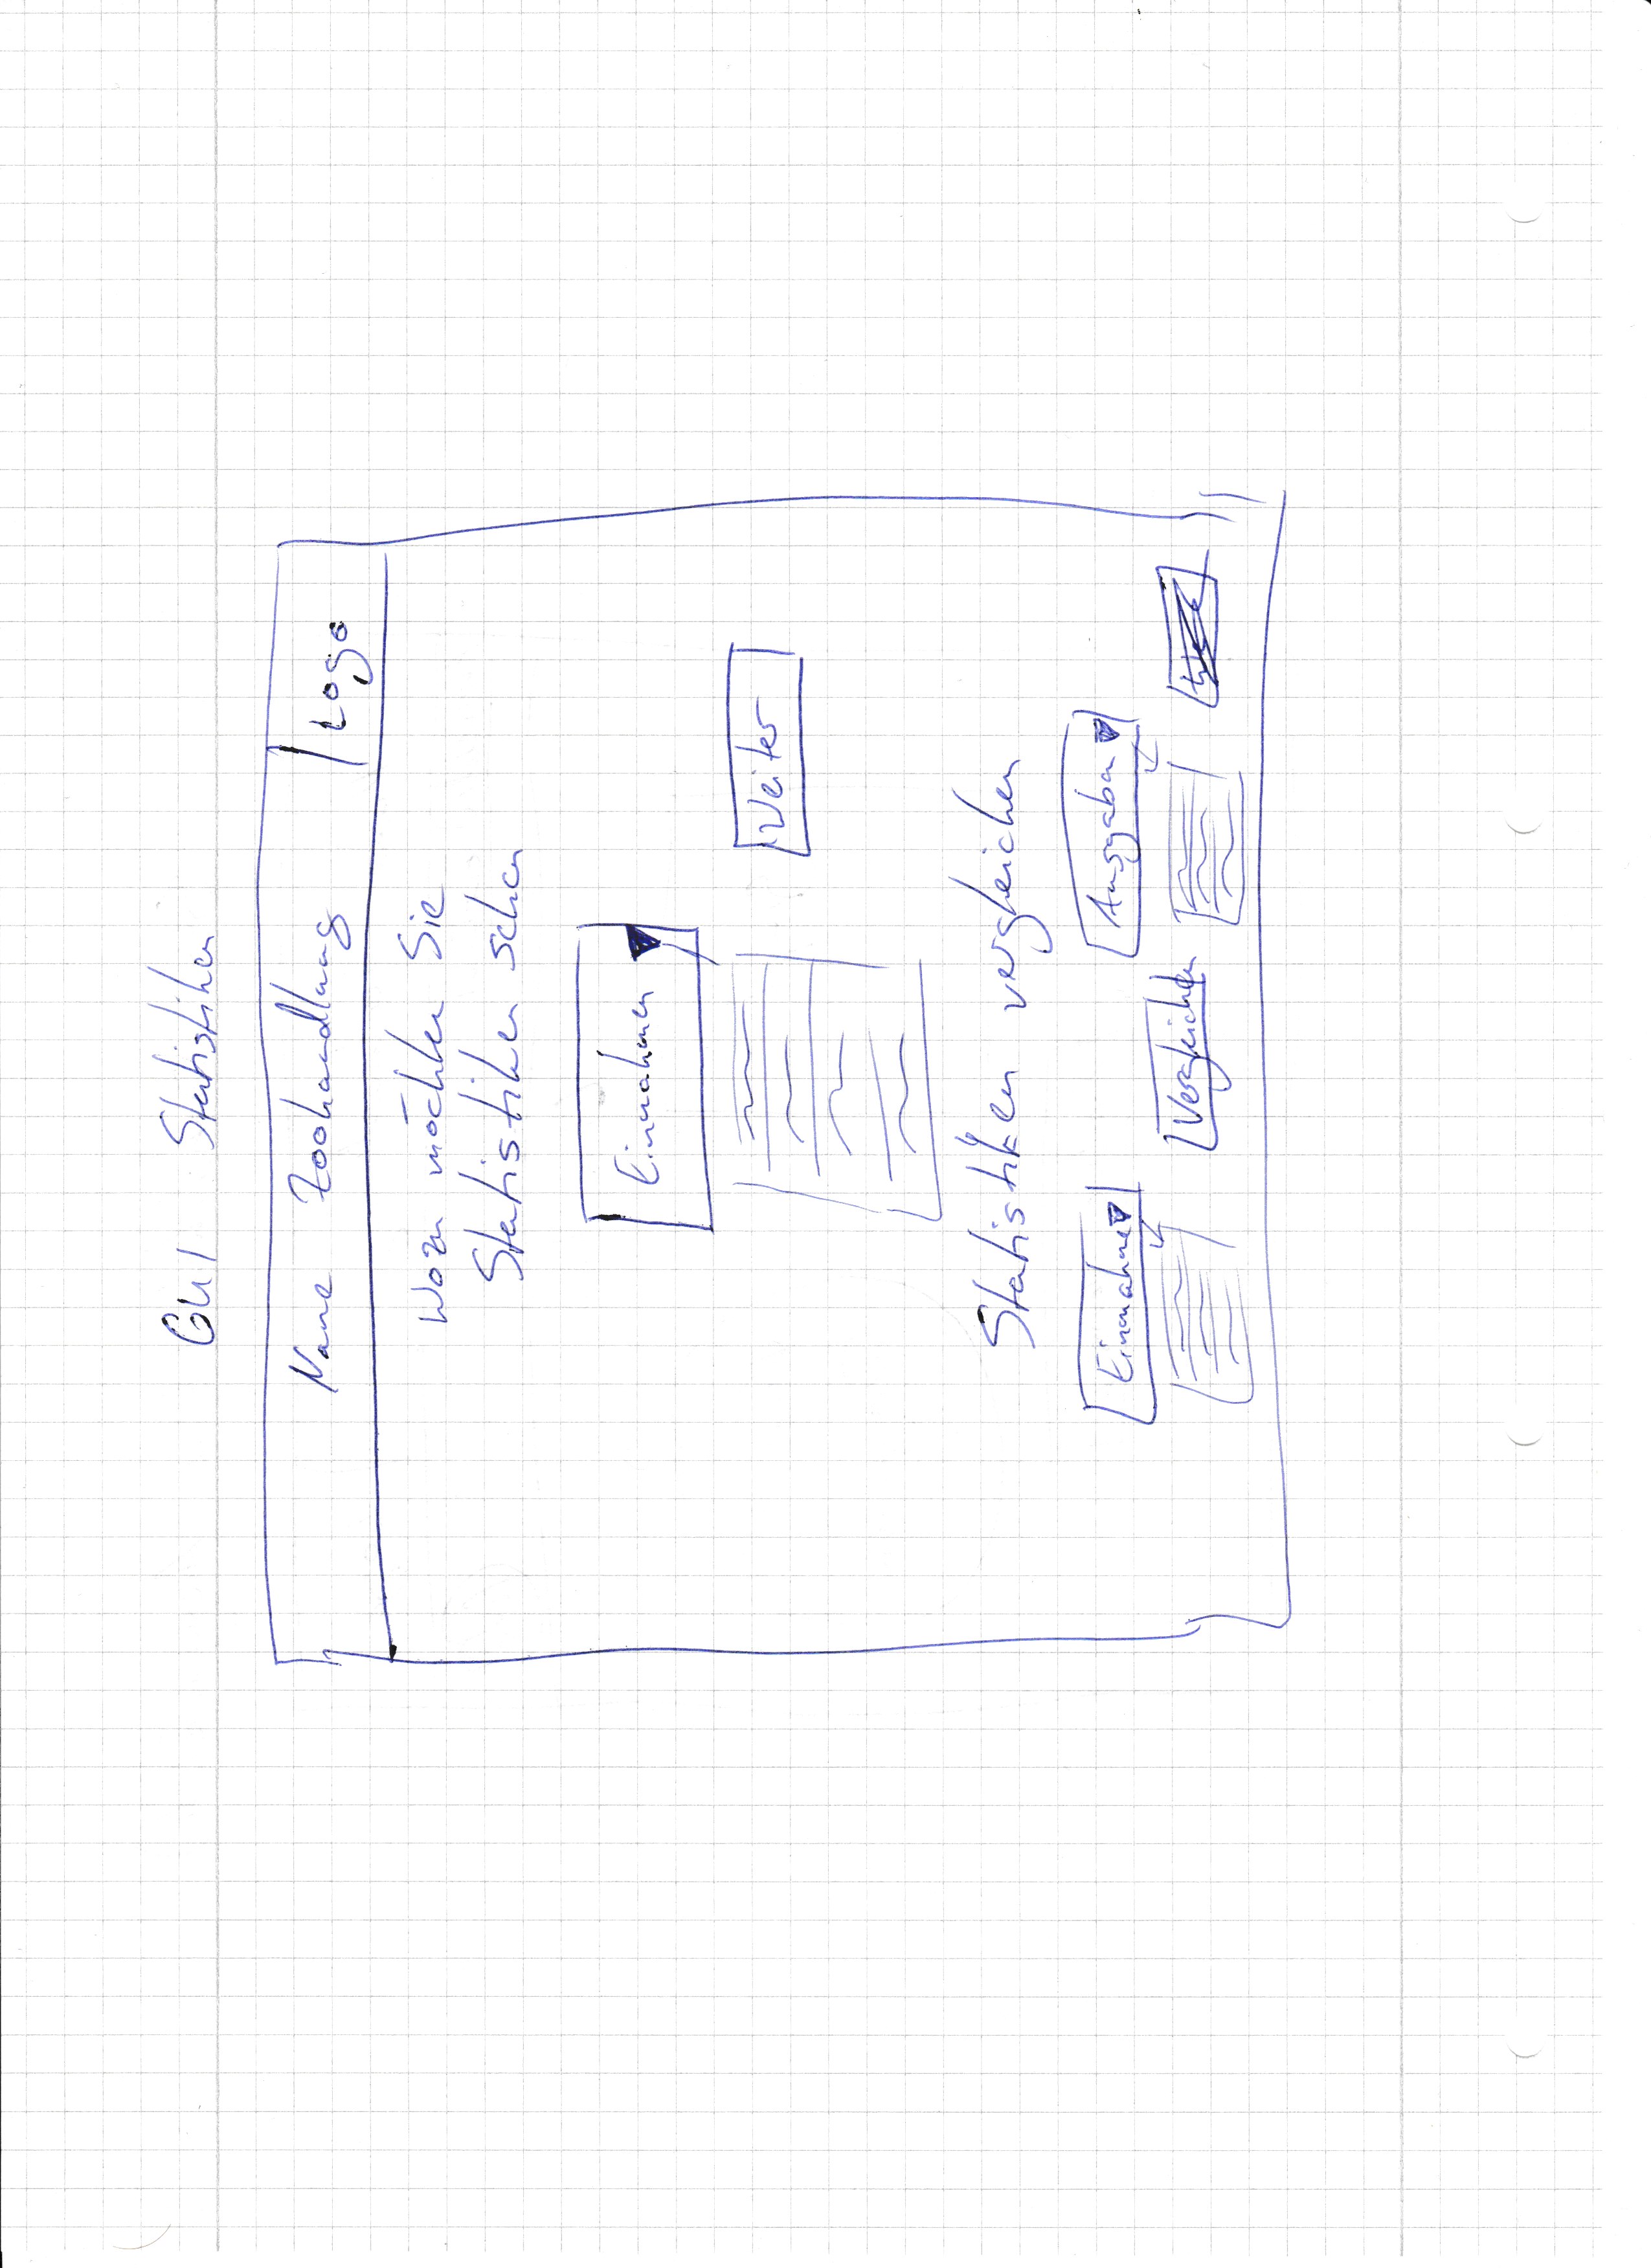 GUI Statistiken
Name Zoohandlung
Logo
Wozu möchten Sie
Statistiken sehen
Einnahmen
Weiter
Statistiken vergleichen
Einnahme
Vergleichen
Ausgaben